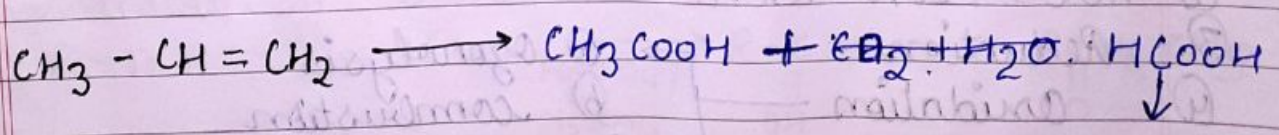 CH3 - CH = CH2 ⟶ CH3COOH + CO2 + H2O. HCOOH
↓